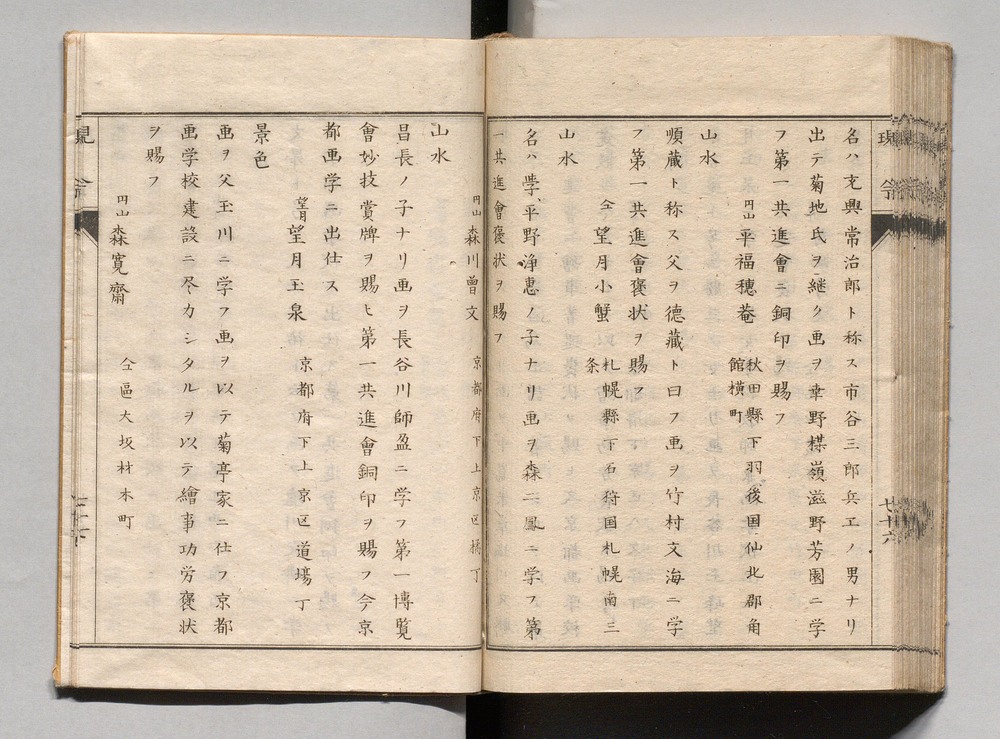 名ハ克興常治郎ト称ス市谷三郎兵ヱノ男ナリ
出テ菊地氏ヲ継ク画ヲ幸野楳嶺滋野芳園ニ学
フ第一共進會ニ銅印ヲ賜フ
円山 平福穂菴 秋田縣下羽後国仙北郡角
館横町
山水
順蔵ト称ス父ヲ德藏ト曰フ画ヲ竹村文海ニ学
フ第一共進會褒状ヲ賜フ
仝 望月小蟹 札幌縣下石狩国札幌南三
条
山水
名ハ學平野浄恵ノ子ナリ画ヲ森二鳳ニ学フ第
一共進會褒状ヲ賜フ
円山 森川曽文 京都府下上京区橘丁
山水
昌長ノ子ナリ画ヲ長谷川師盈ニ学フ第一博覧
會妙技賞牌ヲ賜ヒ第一共進會銅印ヲ賜フ今京
都画学ニ出仕ス
望月 望月玉泉 京都府下上京区道場丁
景色
画ヲ父玉川ニ学フ画ヲ以テ菊亭家ニ仕フ京都
画学校建設ニ尽力シタルヲ以テ繪事功労褒状
ヲ賜フ
円山 森寛齋 仝區大坂材木町
七十六